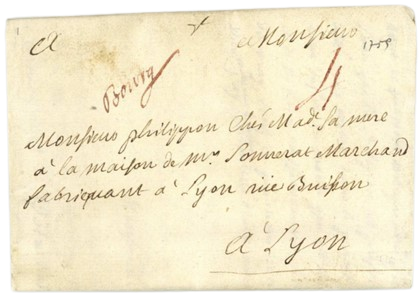 A Monsieur
1759
Bourg
Monsieur philippon chés Made. sa mere
à la maison de mr. Sonnerat Marchand
fabriquant à Lyon rüe Buisson
à Lyon